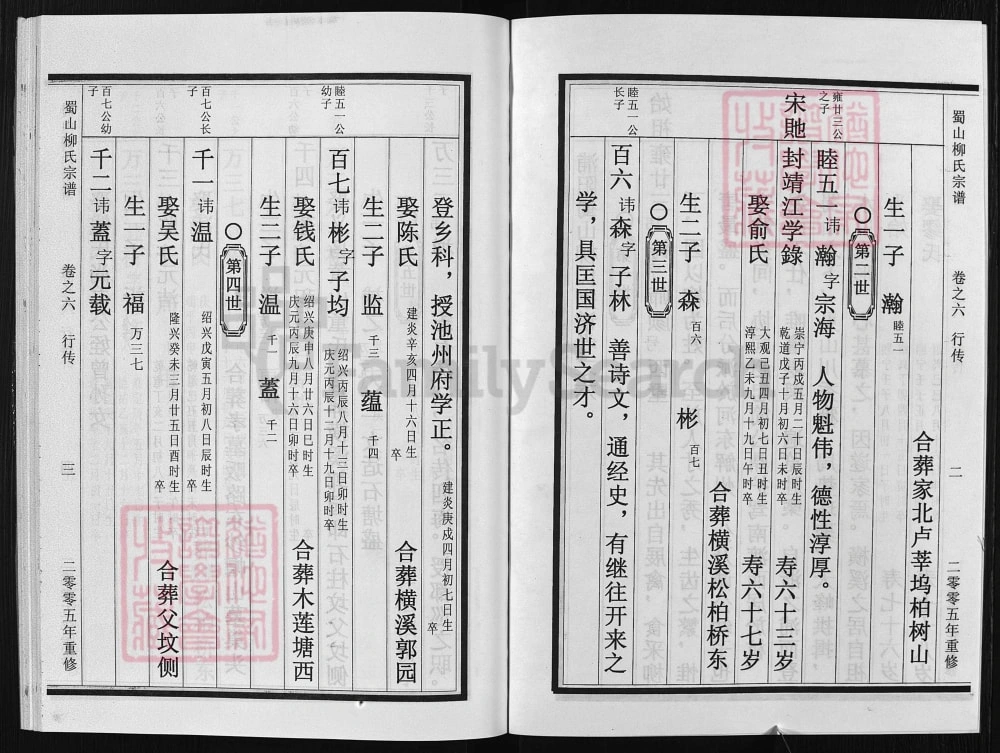 蜀山柳氏宗谱 卷之六 行传 二 二〇〇五年重修
合葬家北卢莘坞柏树山
生一子 瀚 睦五一
第二世
雍廿三公之子
睦五一 讳 瀚 字 宗海 人物魁伟，德性淳厚。
宋貤封靖江学錄
崇宁丙戌五月二十日辰时生
乾道戊子十月初六日未时卒
寿六十三岁
娶俞氏
大观己丑四月初七日丑时生
淳熙乙未九月十九日午时卒
寿六十七岁
合葬横溪松柏桥东
生二子 森 百六 彬 百七
第三世
睦五一公长子
百六 讳 森 字 子林 善诗文，通经史，有继往开来之
学，具匡国济世之才。
登乡科，授池州府学正。
建炎庚戌四月初七日生
卒
娶陈氏
建炎辛亥四月十六日生
卒
合葬横溪郭园
生二子 监 千三 蕴 千四
睦五一公幼子
百七 讳 彬 字 子均
绍兴丙辰八月十三日卯时生
庆元丙辰十二月十九日卯时卒
娶钱氏
绍兴庚申八月廿六日巳时生
庆元丙辰九月十六日卯时卒
合葬木莲塘西
生二子 温 千一 蓋 千二
第四世
百七公长子
千一 讳 温
绍兴戊寅五月初八日辰时生
卒
娶吴氏
隆兴癸未三月廿五日酉时生
卒
合葬父坟侧
生一子 福 万三七
百七公幼子
千二 讳 蓋 字 元载
蜀山柳氏宗谱 卷之六 行传 三 二〇〇五年重修
FamilySearch